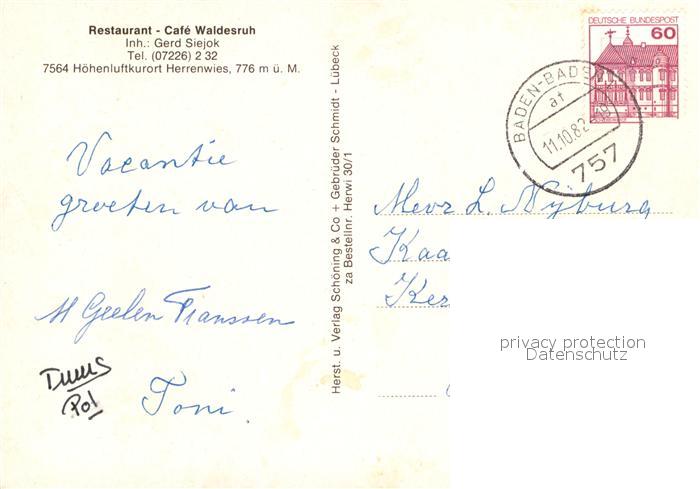 Restaurant - Café Waldesruh
Inh.: Gerd Siejok
Tel. (07226) 2 32
7564 Höhenluftkurort Herrenwies, 776 m ü. M.
Vacantie
groeten van
M Geelen Franssen
Toni.
Pol
Herst. u. Verlag Schöning & Co + Gebrüder Schmidt - Lübeck
za Bestellnr. Herwi 30/1
DEUTSCHE BUNDESPOST
60
BADEN-BADEN
af
11.10.82
757
Mevr L. Nyburg
Kaa
Ker
privacy protection
Datenschutz